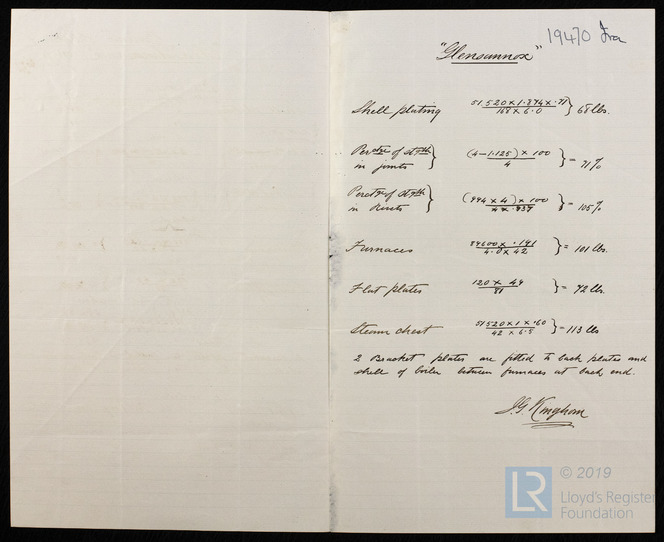 19470 Iron
"Glensannox"
Shell plating 51,520 × 1.874 × .71 / 168 × 6.0 } 68 lbs.
Perctge of stgth in joints } (4 - 1.125) × 100 / 4 } = 71%
Perctge of stgth in Rivets } (994 × 4) × 100 / 4 × .937 } = 105%
Furnaces 89600 × .191 / 4.0 × 42 } = 101 lbs.
Flat plates 120 × 49 / 81 } = 72 lbs.
Steam chest 51520 × 1 × .60 / 42 × 6.5 } = 113 lbs
2 Bracket plates are fitted to back plates and
shell of boiler between furnaces at back end.
J.G. Kinghorn
LR
© 2019
Lloyd's Register
Foundation